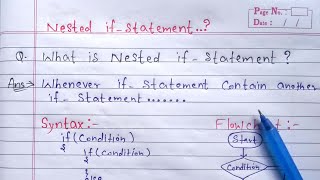 Nested if-statement..?
Page No.:
Date: / /
Q. What is Nested if-statement?
Ans:- Whenever if-statement contain another
if-statement.......
Syntax:-
Flowchart:-
if(Condition)
Start
{
if(condition)
{
Condition
else